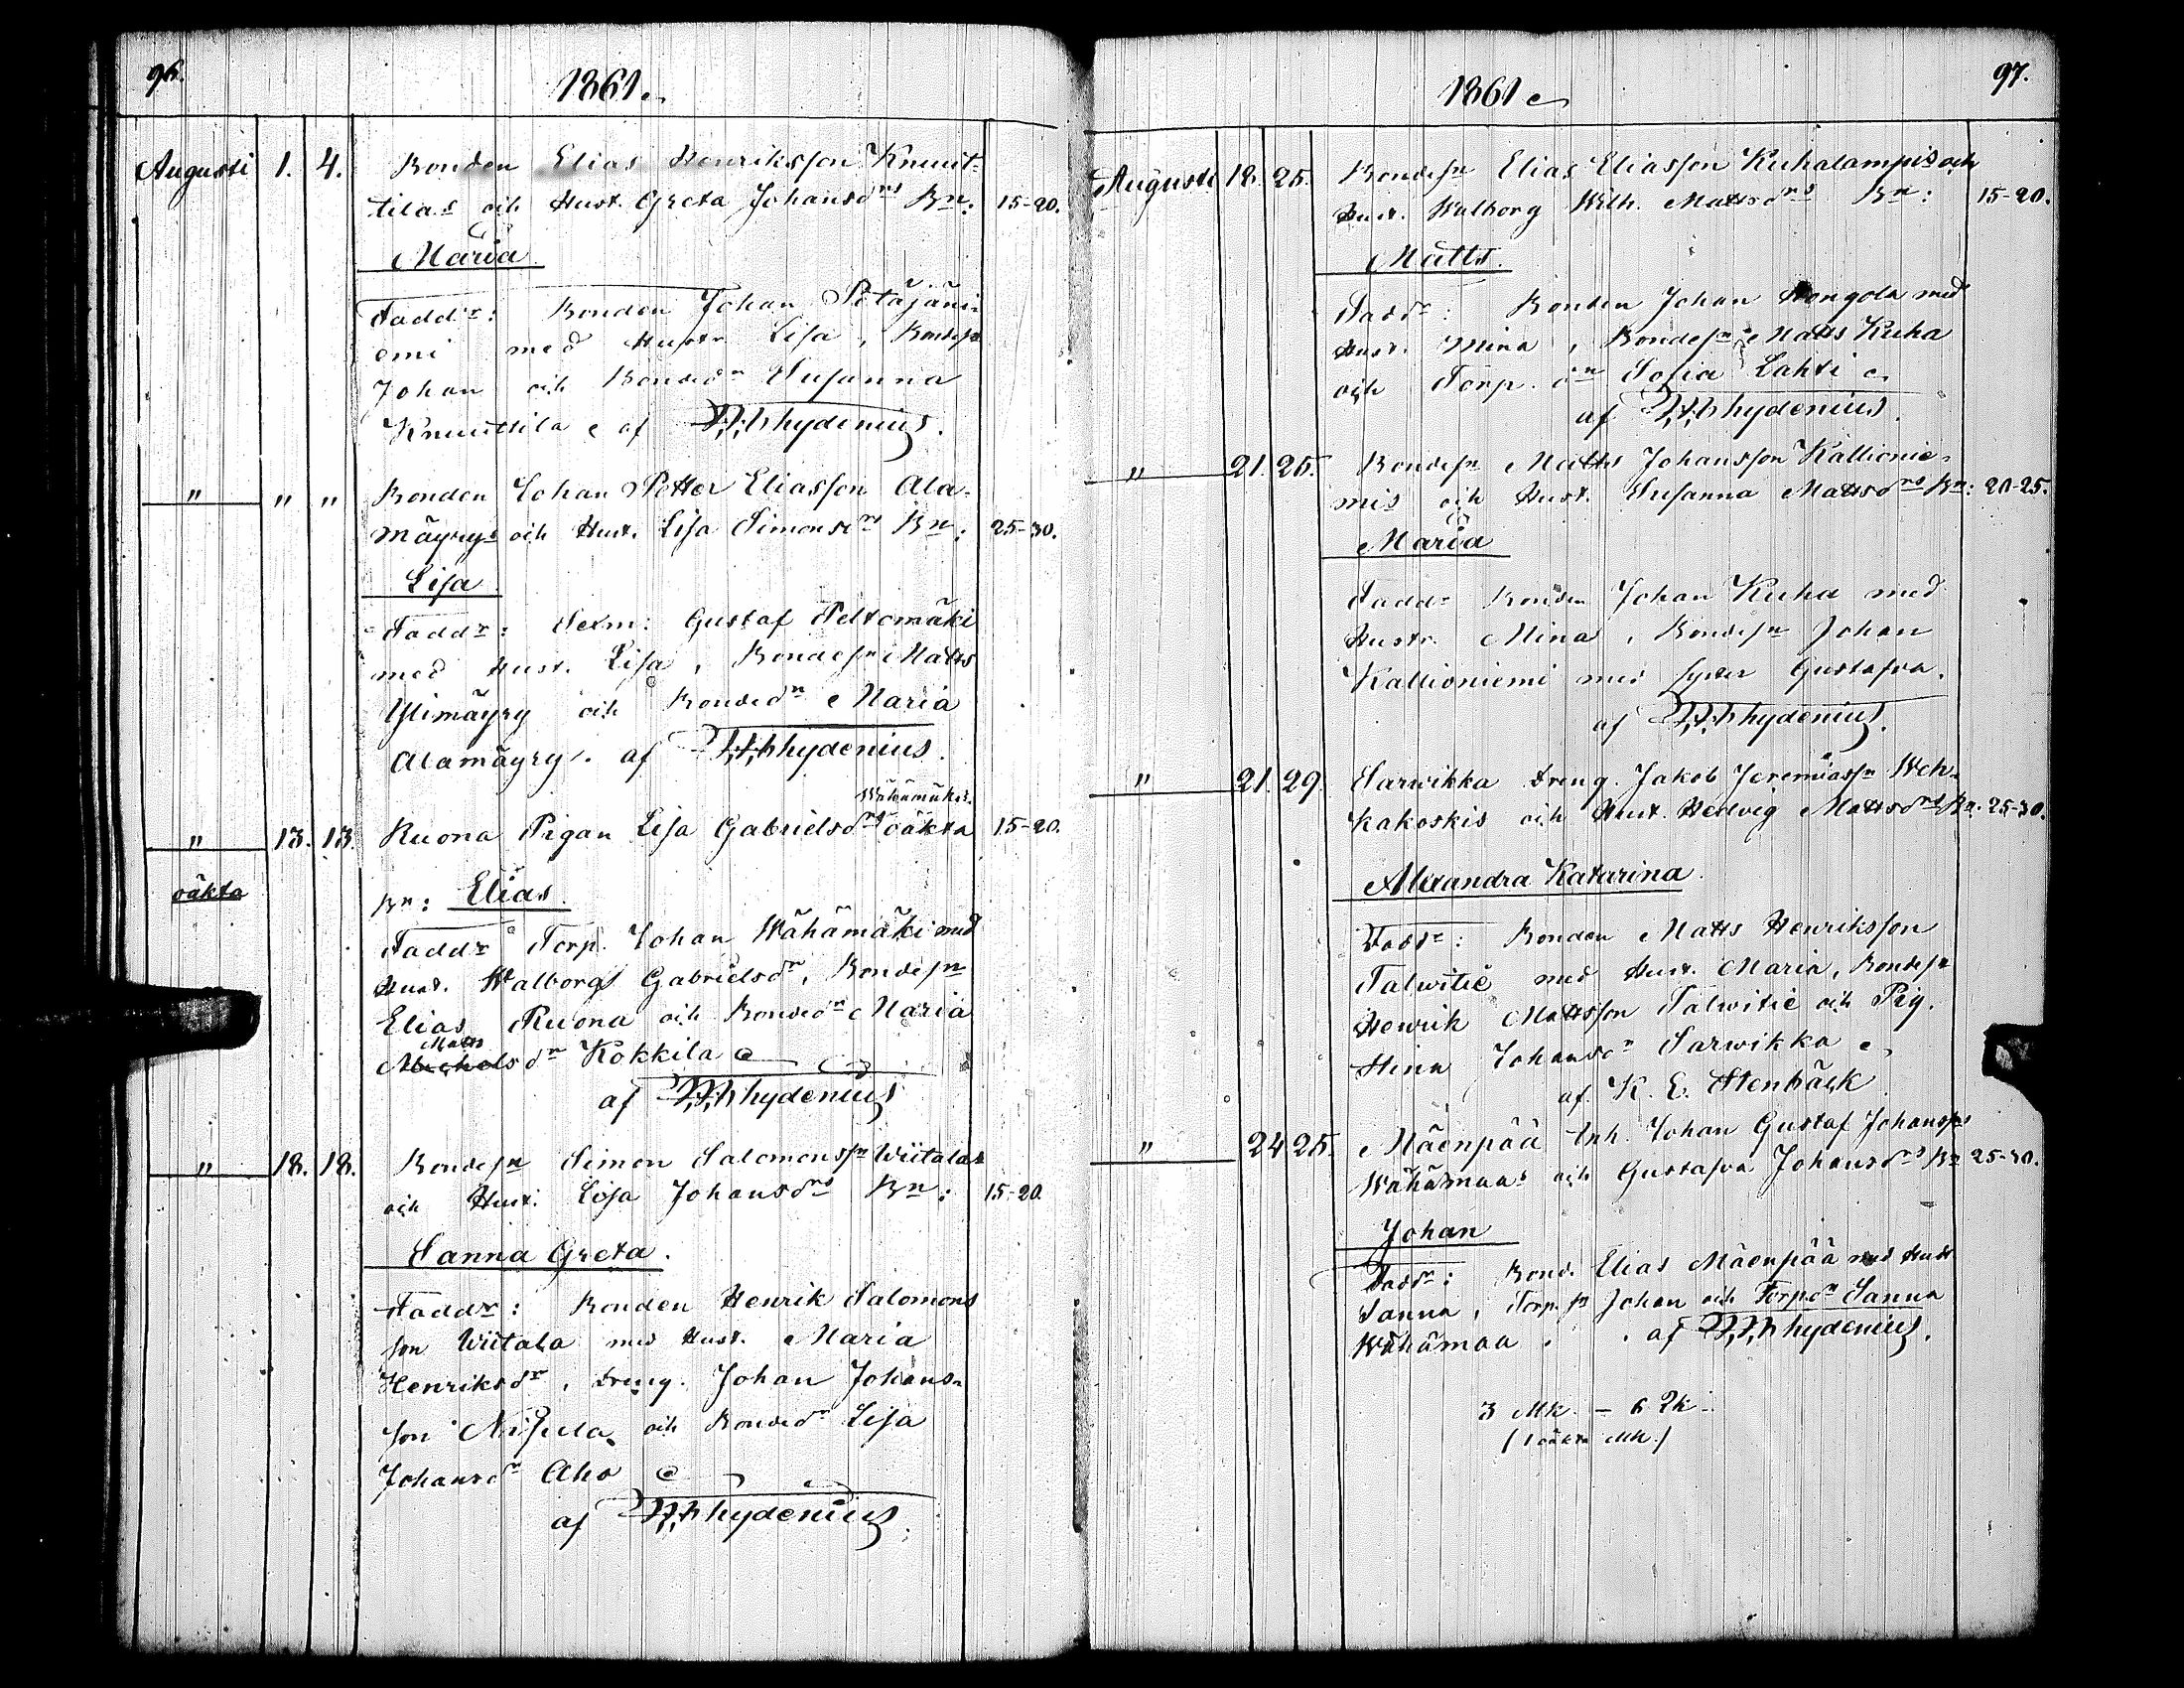 96.
1861.
Augusti 1. 4. Bonden Elias Henriksson Knuut-
tilas och Hust. Greta Johansdrs Bn: 15-20.
Maria
Faddr: Bonden Johan Petäjäni-
emi med Hustr Lisa, Bondesn
Johan och Bondedr Susanna
Knuuttila af hydenius.
" " " Bonden Johan Petter Eliasson Ala-
mäyrys och Hust. Lisa Simonsdrs Bn: 25-30.
Lisa
Faddr: Sexm: Gustaf Peltomäki
med Hust. Lisa, Bondesn Matts
Ylimäyry och Bondedr Maria
Alamäyry. af hydenius.
Wähämäkis.
" 13. 13. Ruona Pigan Lisa Gabrielsdrs oäkta 15-20.
oäkta Bn: Elias
Faddr Torp. Johan Wähämäki med
Hust. Walborg Gabrielsdr, Bondesn
Elias Ruona och Bondedr Maria
Matts
Michelsdr Kokkila
af hydenius
" 18. 18. Bondesn Simon Salomonssn Wiitalas
och Hust. Lisa Johansdrs Bn: 15-20.
Sanna Greta.
Faddr: Bonden Henrik Salomons
son Wiitala med Hust. Maria
Henriksdr, Dreng. Johan Johans-
son Nisula och Bondedr Lisa
Johansdr Aho
af hydenius
97.
1861
Augusti 18. 25. Bondesn Elias Eliasson Kuhalampis och
Hust. Walborg Wilh. Mattsdrs Bn: 15-20.
Matts.
Faddr: Bonden Johan Hongola med
Hust. Mina, Bondesn Matts Kuha
och Torp. dr Sofia Lahti
af hydenius.
" 21. 25. Bondesn Matts Johansson Kallionie-
mis och Hust. Susanna Mattsdrs Bn: 20-25.
Maria
Faddr Bonden Johan Kuha med
Hustr. Mina, Bondesn Johan
Kallioniemi med syster Gustafva.
af hydenius.
" 21. 29. Sarwikka Dreng. Jakob Jeremiassn Weh-
kakoskis och Hust. Hedvig Mattsdrs Bn. 25-30.
Alexandra Katarina.
Faddr: Bonden Matts Henriksson
Talwitie med Hust. Maria, Bondesn
Henrik Mattsson Talwitie och Pig.
Stina Johansdr Sarwikka
af K. E. Stenbäck
" 24 25. Mäenpää Inh. Johan Gustaf Johanssns
Wähämaas och Gustafva Johansdrs Bn 25-30.
Johan
Faddr: Bond. Elias Mäenpää med Hust
Sanna, Torp. sn Johan och Torpdr Sanna
Wähämaa. af hydenius.
3 Mk. - 6 Qk.
(1 oäkta Mk.)